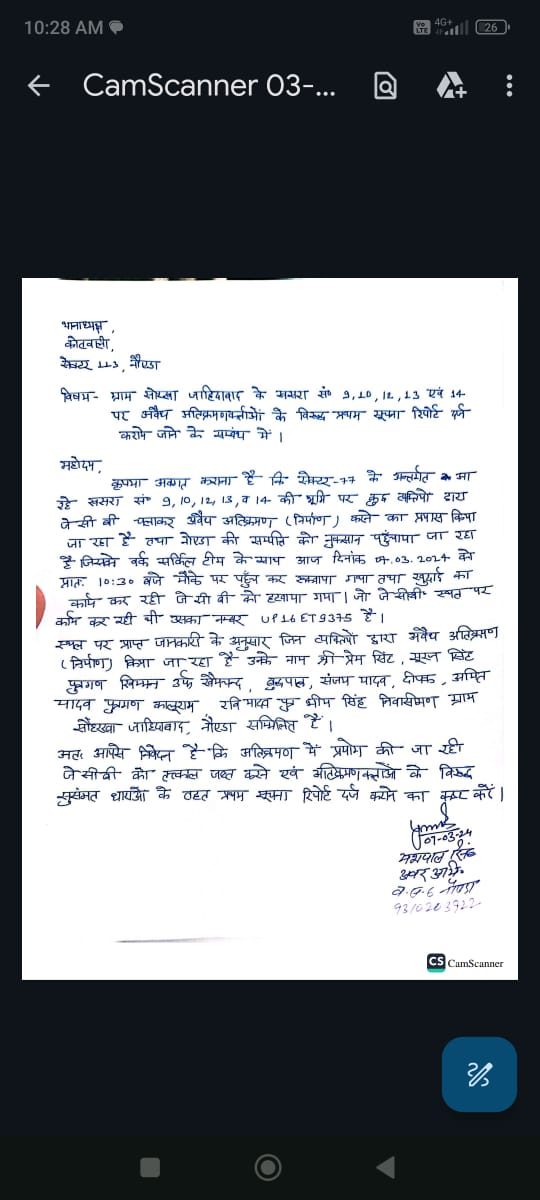 10:28 AM
Vo LTE 4G+ 26
CamScanner 03-...
थानाध्यक्ष,
कोतवाली,
सेक्टर 113, नौएडा
विषय- ग्राम सोरखा जाहिदाबाद के खसरा सं० 9,10,12,13 एवं 14
पर अवैध अतिक्रमणकर्ताओं के विरूद्ध प्रथम सूचना रिपोर्ट दर्ज
कराये जाने के सम्बंध में।
महोदय,
कृपया अवगत कराना है कि सेक्टर-77 के अन्तर्गत आ
रहे खसरा सं० 9, 10, 12, 13, व 14 की भूमि पर कुछ व्यक्तियो द्वारा
जे सी बी चलाकर अवैध अतिक्रमण (निर्माण) करने का प्रयास किया
जा रहा है तथा नौएडा की सम्पत्ति को नुकसान पहुँचाया जा रहा
है जिसमे वर्क सर्किल टीम के साथ आज दिनांक 07.03.2024 को
प्रात: 10:30 बजे मौके पर पहुँच कर रूकवाया गया तथा खुदाई का
कार्य कर रही जे सी बी को हटवाया गया। जो जे सीबी स्थल पर
काम कर रही थी उसका नम्बर UP16 ET9375 है।
स्थल पर प्राप्त जानकारी के अनुसार जिन व्यक्तियो द्वारा अवैध अतिक्रमण
(निर्माण) किया जा रहा है उनके नाम श्री प्रेम सिंह, सूरज सिंह
पुत्रगण खिम्मन उर्फ खेमचन्द, बुद्धपाल, संजय यादव, दीपक, अमित
यादव पुत्रगण कालूराम, रवि यादव पुत्र भीम सिंह निवासीगण ग्राम
सौरखा जाहिदाबाद, नौएडा सम्मिलित है।
अत: आपसे निवेदन है कि अतिक्रमण में प्रयोग की जा रही
जे सी बी को तत्काल जब्त करने एवं अतिक्रमणकर्ताओं के विरूद्ध
सुसंगत धाराओं के तहत प्रथम सूचना रिपोर्ट दर्ज करने का कष्ट करें।
07-03-24
सिंह
अवर अभि०
व.स.6 नौएडा
9310203922
CS CamScanner